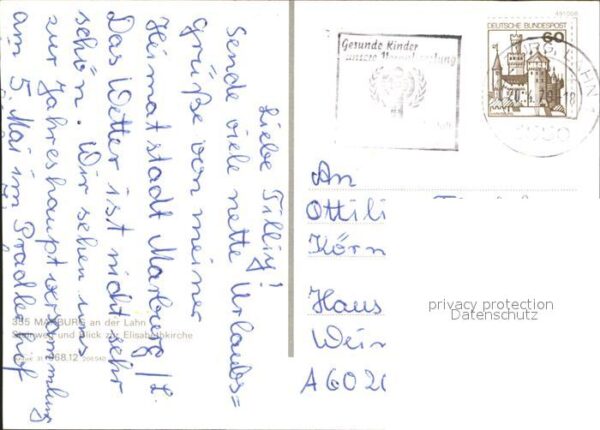 Liebe Tilly!
Sende viele nette Urlaubs=
grüße von meiner
Heimatstadt Marburg/L.
Das Wetter ist nicht sehr
schön. Wir sehen uns
zur Jahreshauptversammlung
am 5. Mai im Pradlerhof
355 MARBURG an der Lahn
Steinweg und Blick zur Elisabethkirche
68.12
491006
DEUTSCHE BUNDESPOST
60
Gesunde Kinder
unsere
An
Ottili
Körn
Haus
Wein
A 602
privacy protection
Datenschutz